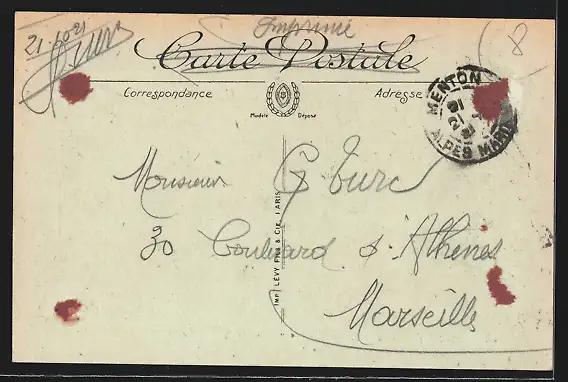 Imprimé
21-10-21
Carte Postale
Correspondance
Adresse
Modèle Déposé
MENTON
21
ALPES MARIT
Monsieur G. Turc
30 Boulevard d'Athènes
Marseille
IMP. LÉVY FILS & CIE, PARIS
8